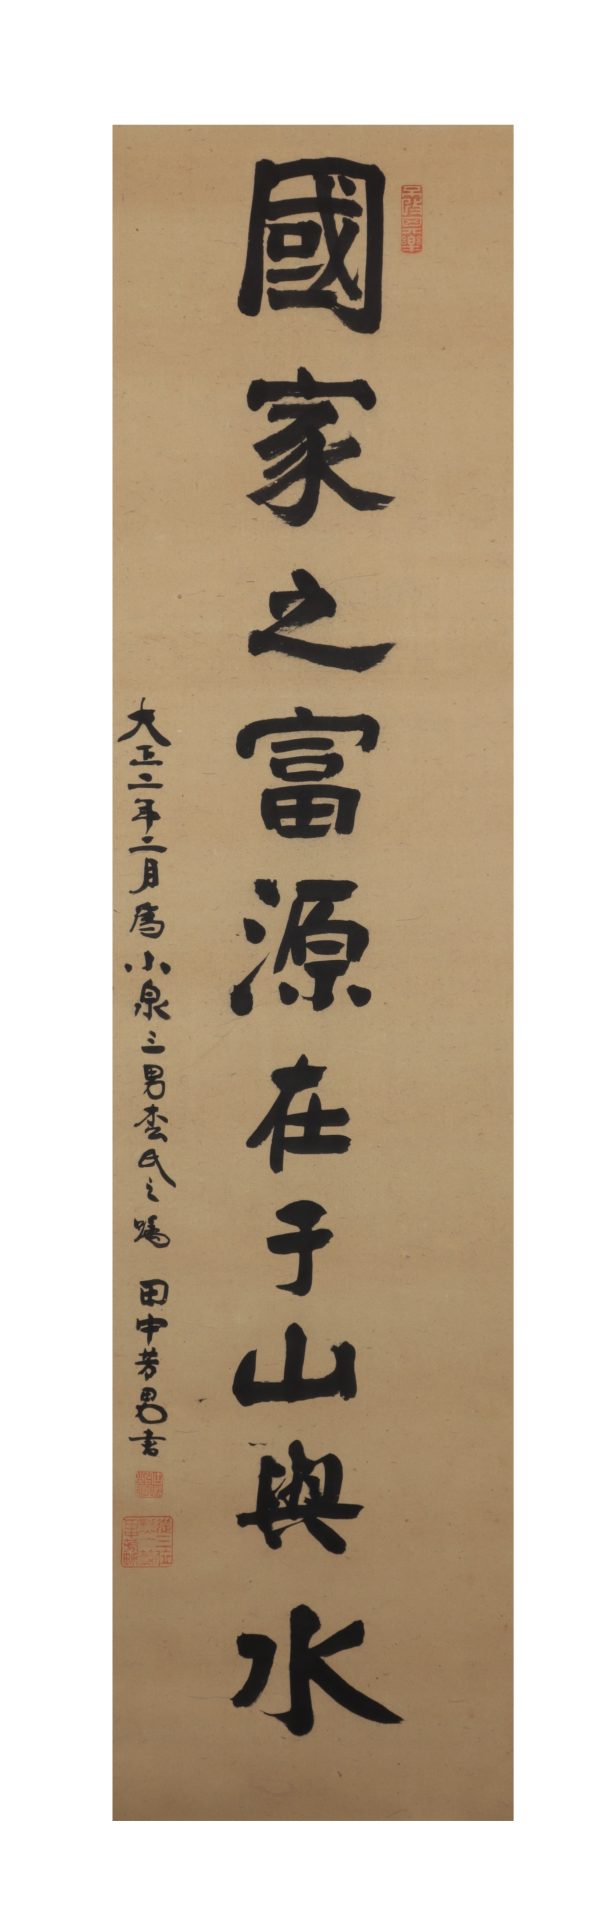 國家之富源在于山與水
大正二年二月為小泉三男杢氏之嘱 田中芳男書